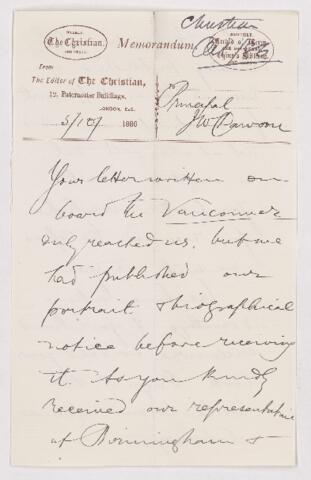 Christian
WEEKLY.
The Christian.
Memorandum
MONTHLY.
From
The Editor of The Christian,
12, Paternoster Buildings,
LONDON, E.C.
5/10/ 1886
To
Principal
JW Dawson
Your letter written on
board the Vancouver
duly reached us, but we
had published our
portrait & biographical
notice before receiving
it. As you kindly
received our representative
at Birmingham &